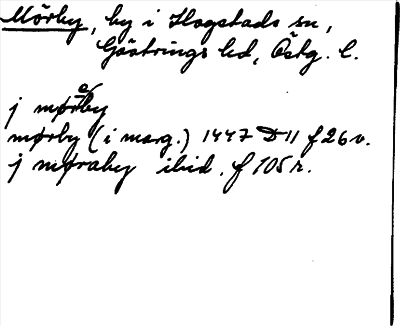 Mörby, by i Hogstads sn,
Göstrings hd, Östg. l.
j mørᵃby
mørby (i marg.) 1447 D 11 f 26 v.
j møraby ibid. f 105 r.